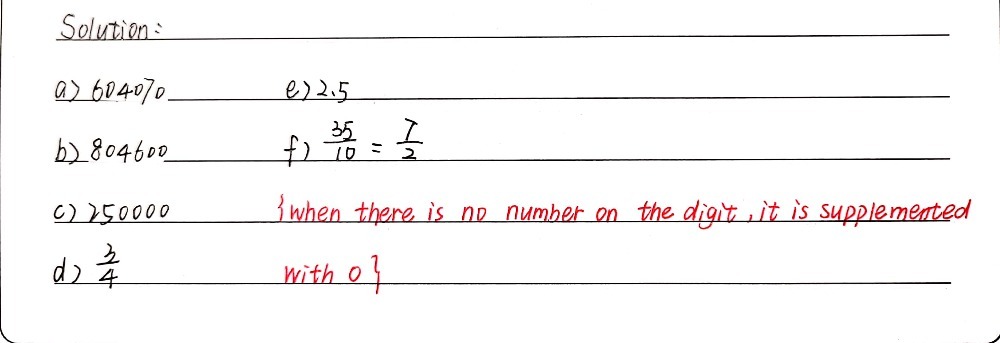 Solution:
a) 604070 e) 2.5
b) 804600 f) 35/10 = 7/2
c) 250000 {when there is no number on the digit, it is supplemented
d) 3/4 with 0}